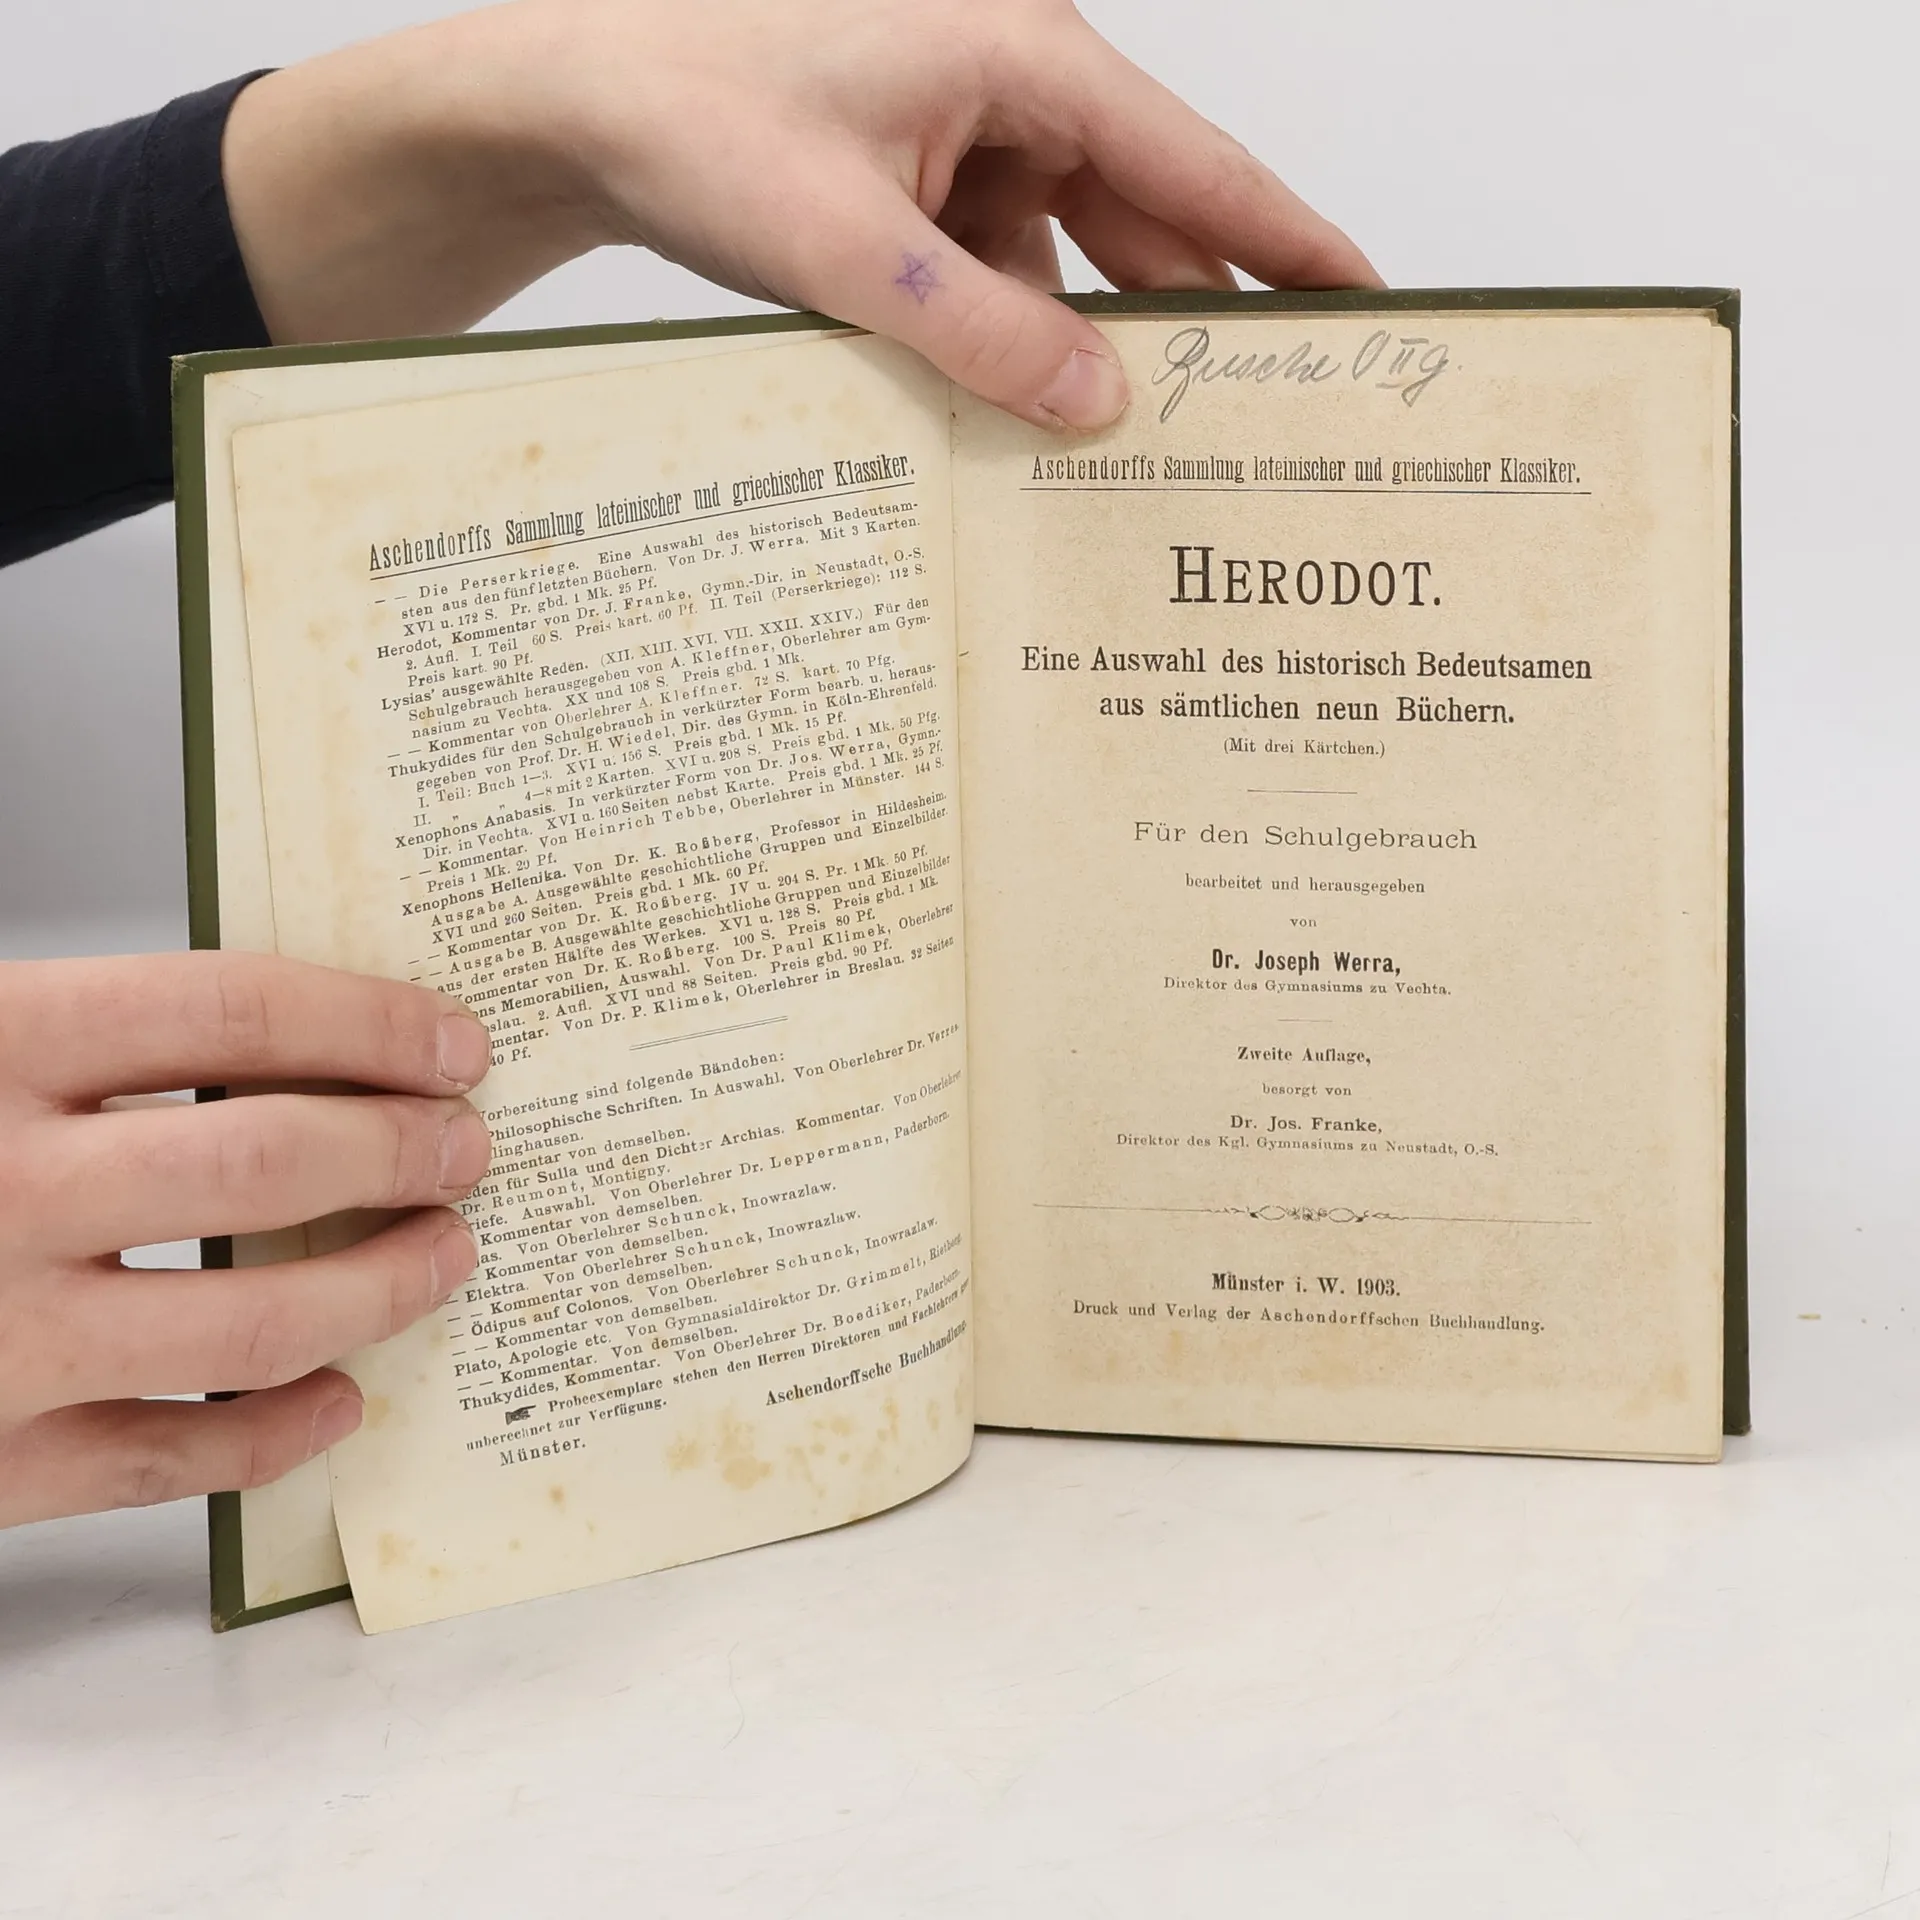 Aschendorffs Sammlung lateinischer und griechischer Klassiker.
— — Die Perserkriege. Eine Auswahl des historisch Bedeutsam-
sten aus den fünf letzten Büchern. Von Dr. J. Werra. Mit 3 Karten.
XVI u. 172 S. Pr. gbd. 1 Mk. 25 Pf.
Herodot, Kommentar von Dr. J. Franke, Gymn.-Dir. in Neustadt, O.-S.
2. Aufl. I. Teil 60 S. Preis kart. 60 Pf. II. Teil (Perserkriege): 112 S.
Preis kart. 90 Pf.
Lysias' ausgewählte Reden. (XII. XIII. XVI. VII. XXII. XXIV.) Für den
Schulgebrauch herausgegeben von A. Kleffner, Oberlehrer am Gym-
nasium zu Vechta. XX und 108 S. Preis gbd. 1 Mk.
— — Kommentar von Oberlehrer A. Kleffner. 72 S. kart. 70 Pfg.
Thukydides für den Schulgebrauch in verkürzter Form bearb. u. heraus-
gegeben von Prof. Dr. H. Wiedel, Dir. des Gymn. in Köln-Ehrenfeld.
I. Teil: Buch 1—3. XVI u. 156 S. Preis gbd. 1 Mk. 15 Pf.
II. „ „ 4—8 mit 2 Karten. XVI u. 208 S. Preis gbd. 1 Mk. 50 Pfg.
Xenophons Anabasis. In verkürzter Form von Dr. Jos. Werra, Gymn.-
Dir. in Vechta. XVI u. 160 Seiten nebst Karte. Preis gbd. 1 Mk. 25 Pf.
— — Kommentar. Von Heinrich Tebbe, Oberlehrer in Münster. 144 S.
Preis 1 Mk. 20 Pf.
Xenophons Hellenika. Von Dr. K. Roßberg, Professor in Hildesheim.
Ausgabe A. Ausgewählte geschichtliche Gruppen und Einzelbilder.
XVI und 260 Seiten. Preis gbd. 1 Mk. 60 Pf.
— — Kommentar von Dr. K. Roßberg. IV u. 204 S. Pr. 1 Mk. 50 Pf.
— — Ausgabe B. Ausgewählte geschichtliche Gruppen und Einzelbilder
aus der ersten Hälfte des Werkes. XVI u. 128 S. Preis gbd. 1 Mk.
Kommentar von Dr. K. Roßberg. 100 S. Preis 80 Pf.
ons Memorabilien, Auswahl. Von Dr. Paul Klimek, Oberlehrer
slau. 2. Aufl. XVI und 88 Seiten. Preis gbd. 90 Pf.
mentar. Von Dr. P. Klimek, Oberlehrer in Breslau. 32 Seiten
40 Pf.
Vorbereitung sind folgende Bändchen:
Philosophische Schriften. In Auswahl. Von Oberlehrer Dr. Verres
linghausen.
ommentar von demselben.
eden für Sulla und den Dichter Archias. Kommentar. Von Oberlehrer
Dr. Reumont, Montigny.
riefe. Auswahl. Von Oberlehrer Dr. Leppermann, Paderborn.
Kommentar von demselben.
as. Von Oberlehrer Schunck, Inowrazlaw.
— Kommentar von demselben.
— Elektra. Von Oberlehrer Schunck, Inowrazlaw.
— — Kommentar von demselben.
— Ödipus auf Colonos. Von Oberlehrer Schunck, Inowrazlaw.
— — Kommentar von demselben.
Plato, Apologie etc. Von Gymnasialdirektor Dr. Grimmelt, Rietberg.
— — Kommentar. Von demselben.
Thukydides, Kommentar. Von Oberlehrer Dr. Boediker, Paderborn.
Probeexemplare stehen den Herren Direktoren und Fachlehrern
unberechnet zur Verfügung.
Münster.
Aschendorffsche Buchhandlung.
Busche O II g.
Aschendorffs Sammlung lateinischer und griechischer Klassiker.
HERODOT.
Eine Auswahl des historisch Bedeutsamen
aus sämtlichen neun Büchern.
(Mit drei Kärtchen.)
Für den Schulgebrauch
bearbeitet und herausgegeben
von
Dr. Joseph Werra,
Direktor des Gymnasiums zu Vechta.
Zweite Auflage,
besorgt von
Dr. Jos. Franke,
Direktor des Kgl. Gymnasiums zu Neustadt, O.-S.
Münster i. W. 1903.
Druck und Verlag der Aschendorffschen Buchhandlung.